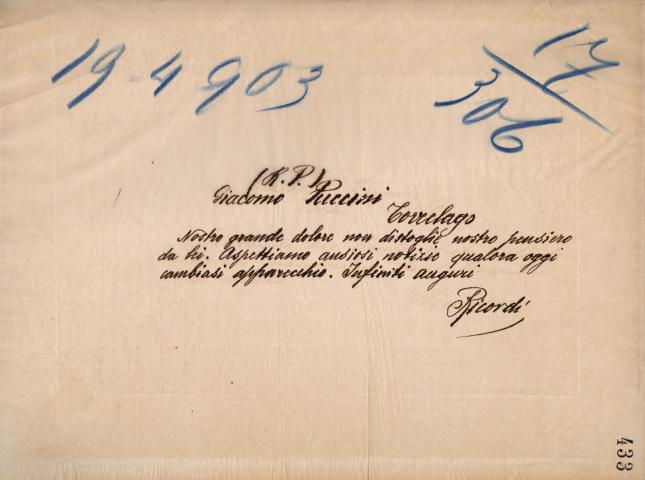 19-4-903
17/306
(R. P.)
Giacomo Puccini
Torrelago
Nostro grande dolore non distoglie nostro pensiero
da lei. Aspettiamo ansiosi notizie qualora oggi
cambiasi apparecchio. Infiniti auguri
Ricordi
433